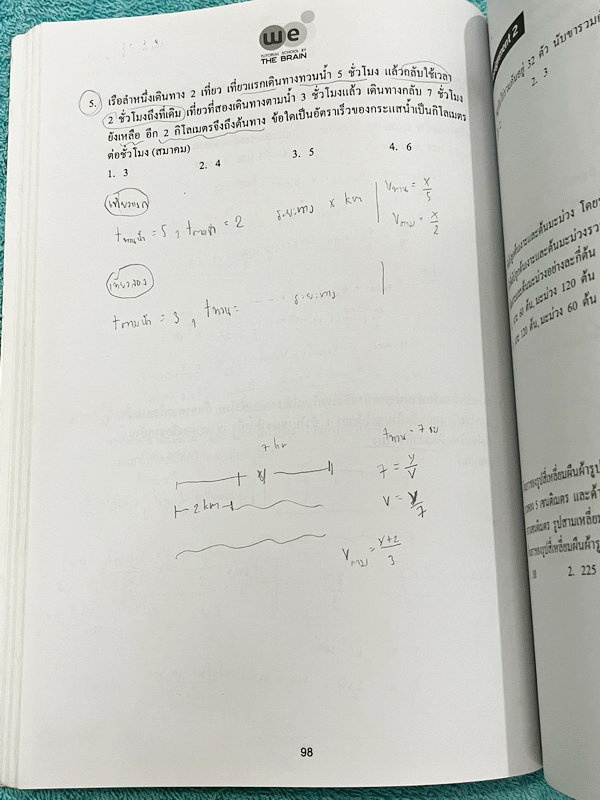 we
TUTORIAL SCHOOL BY
THE BRAIN
5. เรือลำหนึ่งเดินทาง 2 เที่ยว เที่ยวแรกเดินทางทวนน้ำ 5 ชั่วโมง แล้วกลับใช้เวลา
2 ชั่วโมงถึงที่เดิม เที่ยวที่สองเดินทางตามน้ำ 3 ชั่วโมงแล้ว เดินทางกลับ 7 ชั่วโมง
ยังเหลือ อีก 2 กิโลเมตรจึงถึงต้นทาง ข้อใดเป็นอัตราเร็วของกระแสน้ำเป็นกิโลเมตร
ต่อชั่วโมง (สมาคม)
1. 3 2. 4 3. 5 4. 6
เที่ยวแรก
t ทวนน้ำ = 5 , t ตามน้ำ = 2 ระยะทาง x km
V ทวน = x/5
V ตาม = x/2
เที่ยวสอง
t ตามน้ำ = 3 , t ทวน = ระยะทาง
7 hr
2 km
t ทวน = 7 ชม
7 = y/v
v = y/7
V ตาม = y+2/3
98
ment 2
32 ตัว
2. 3
60 ต้น, มะม่วง 120 ต้น
120 ต้น, มะม่วง 60 ต้น
2. 225